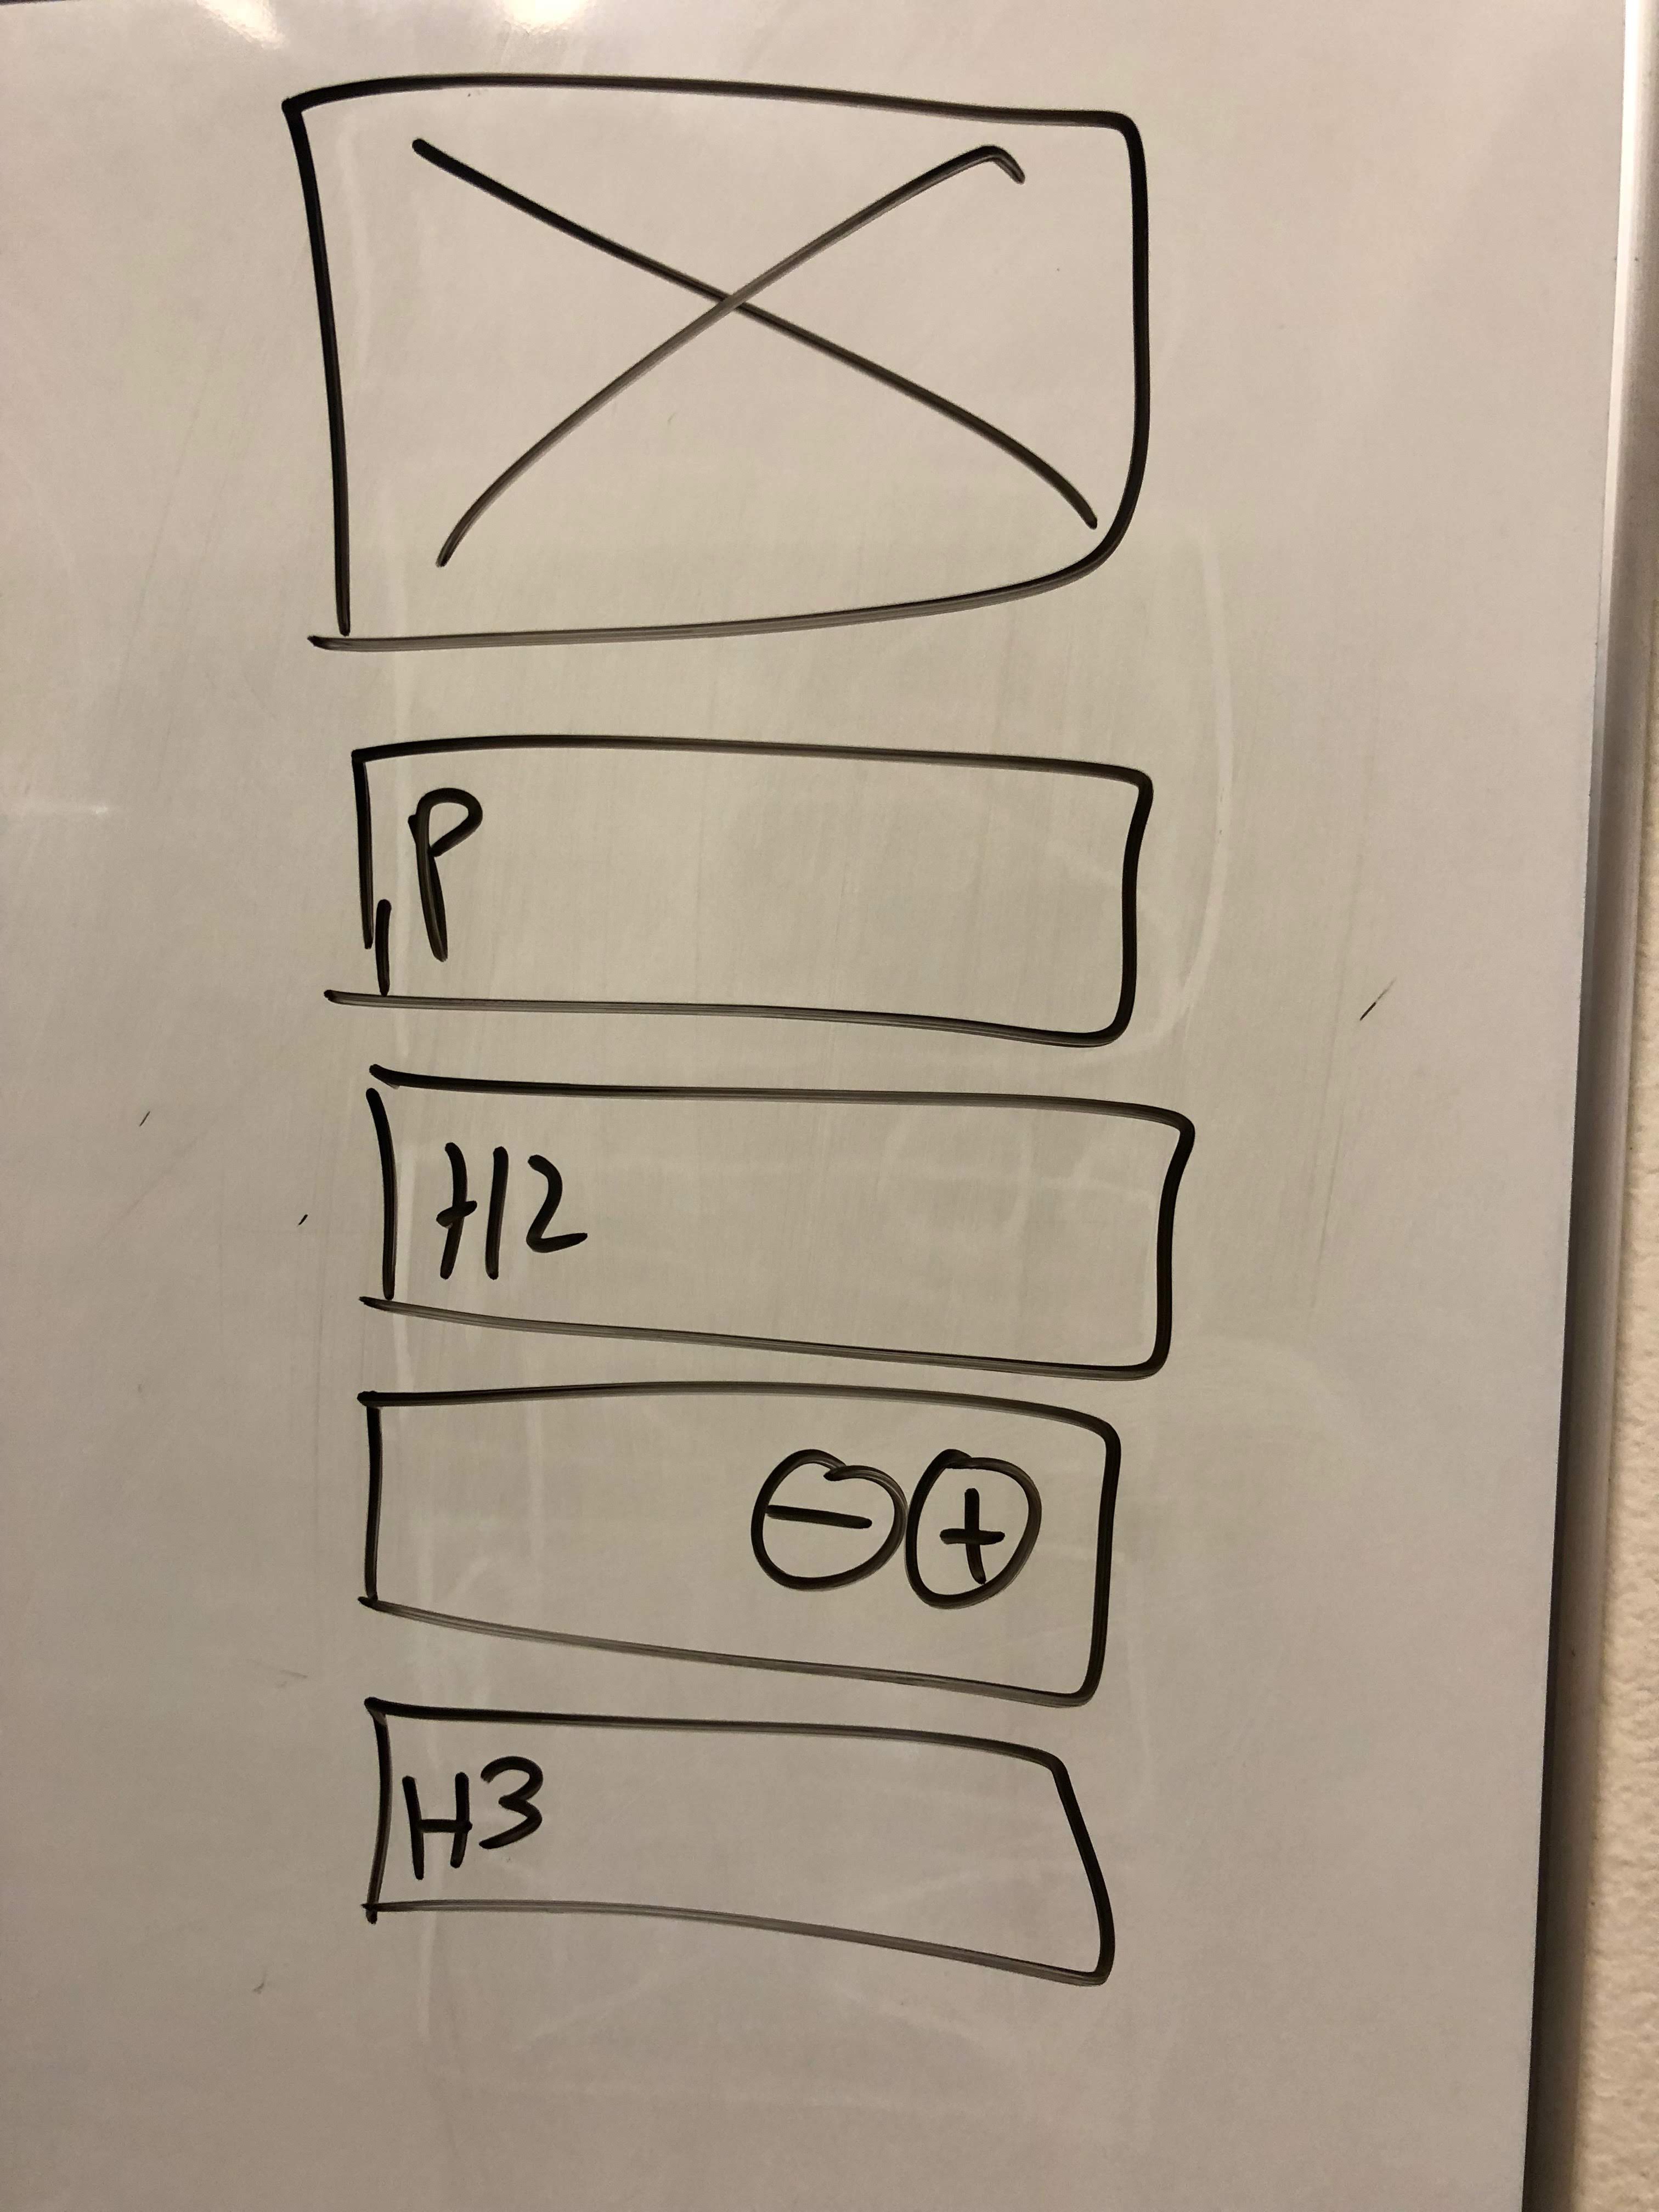 P
H2
- +
H3